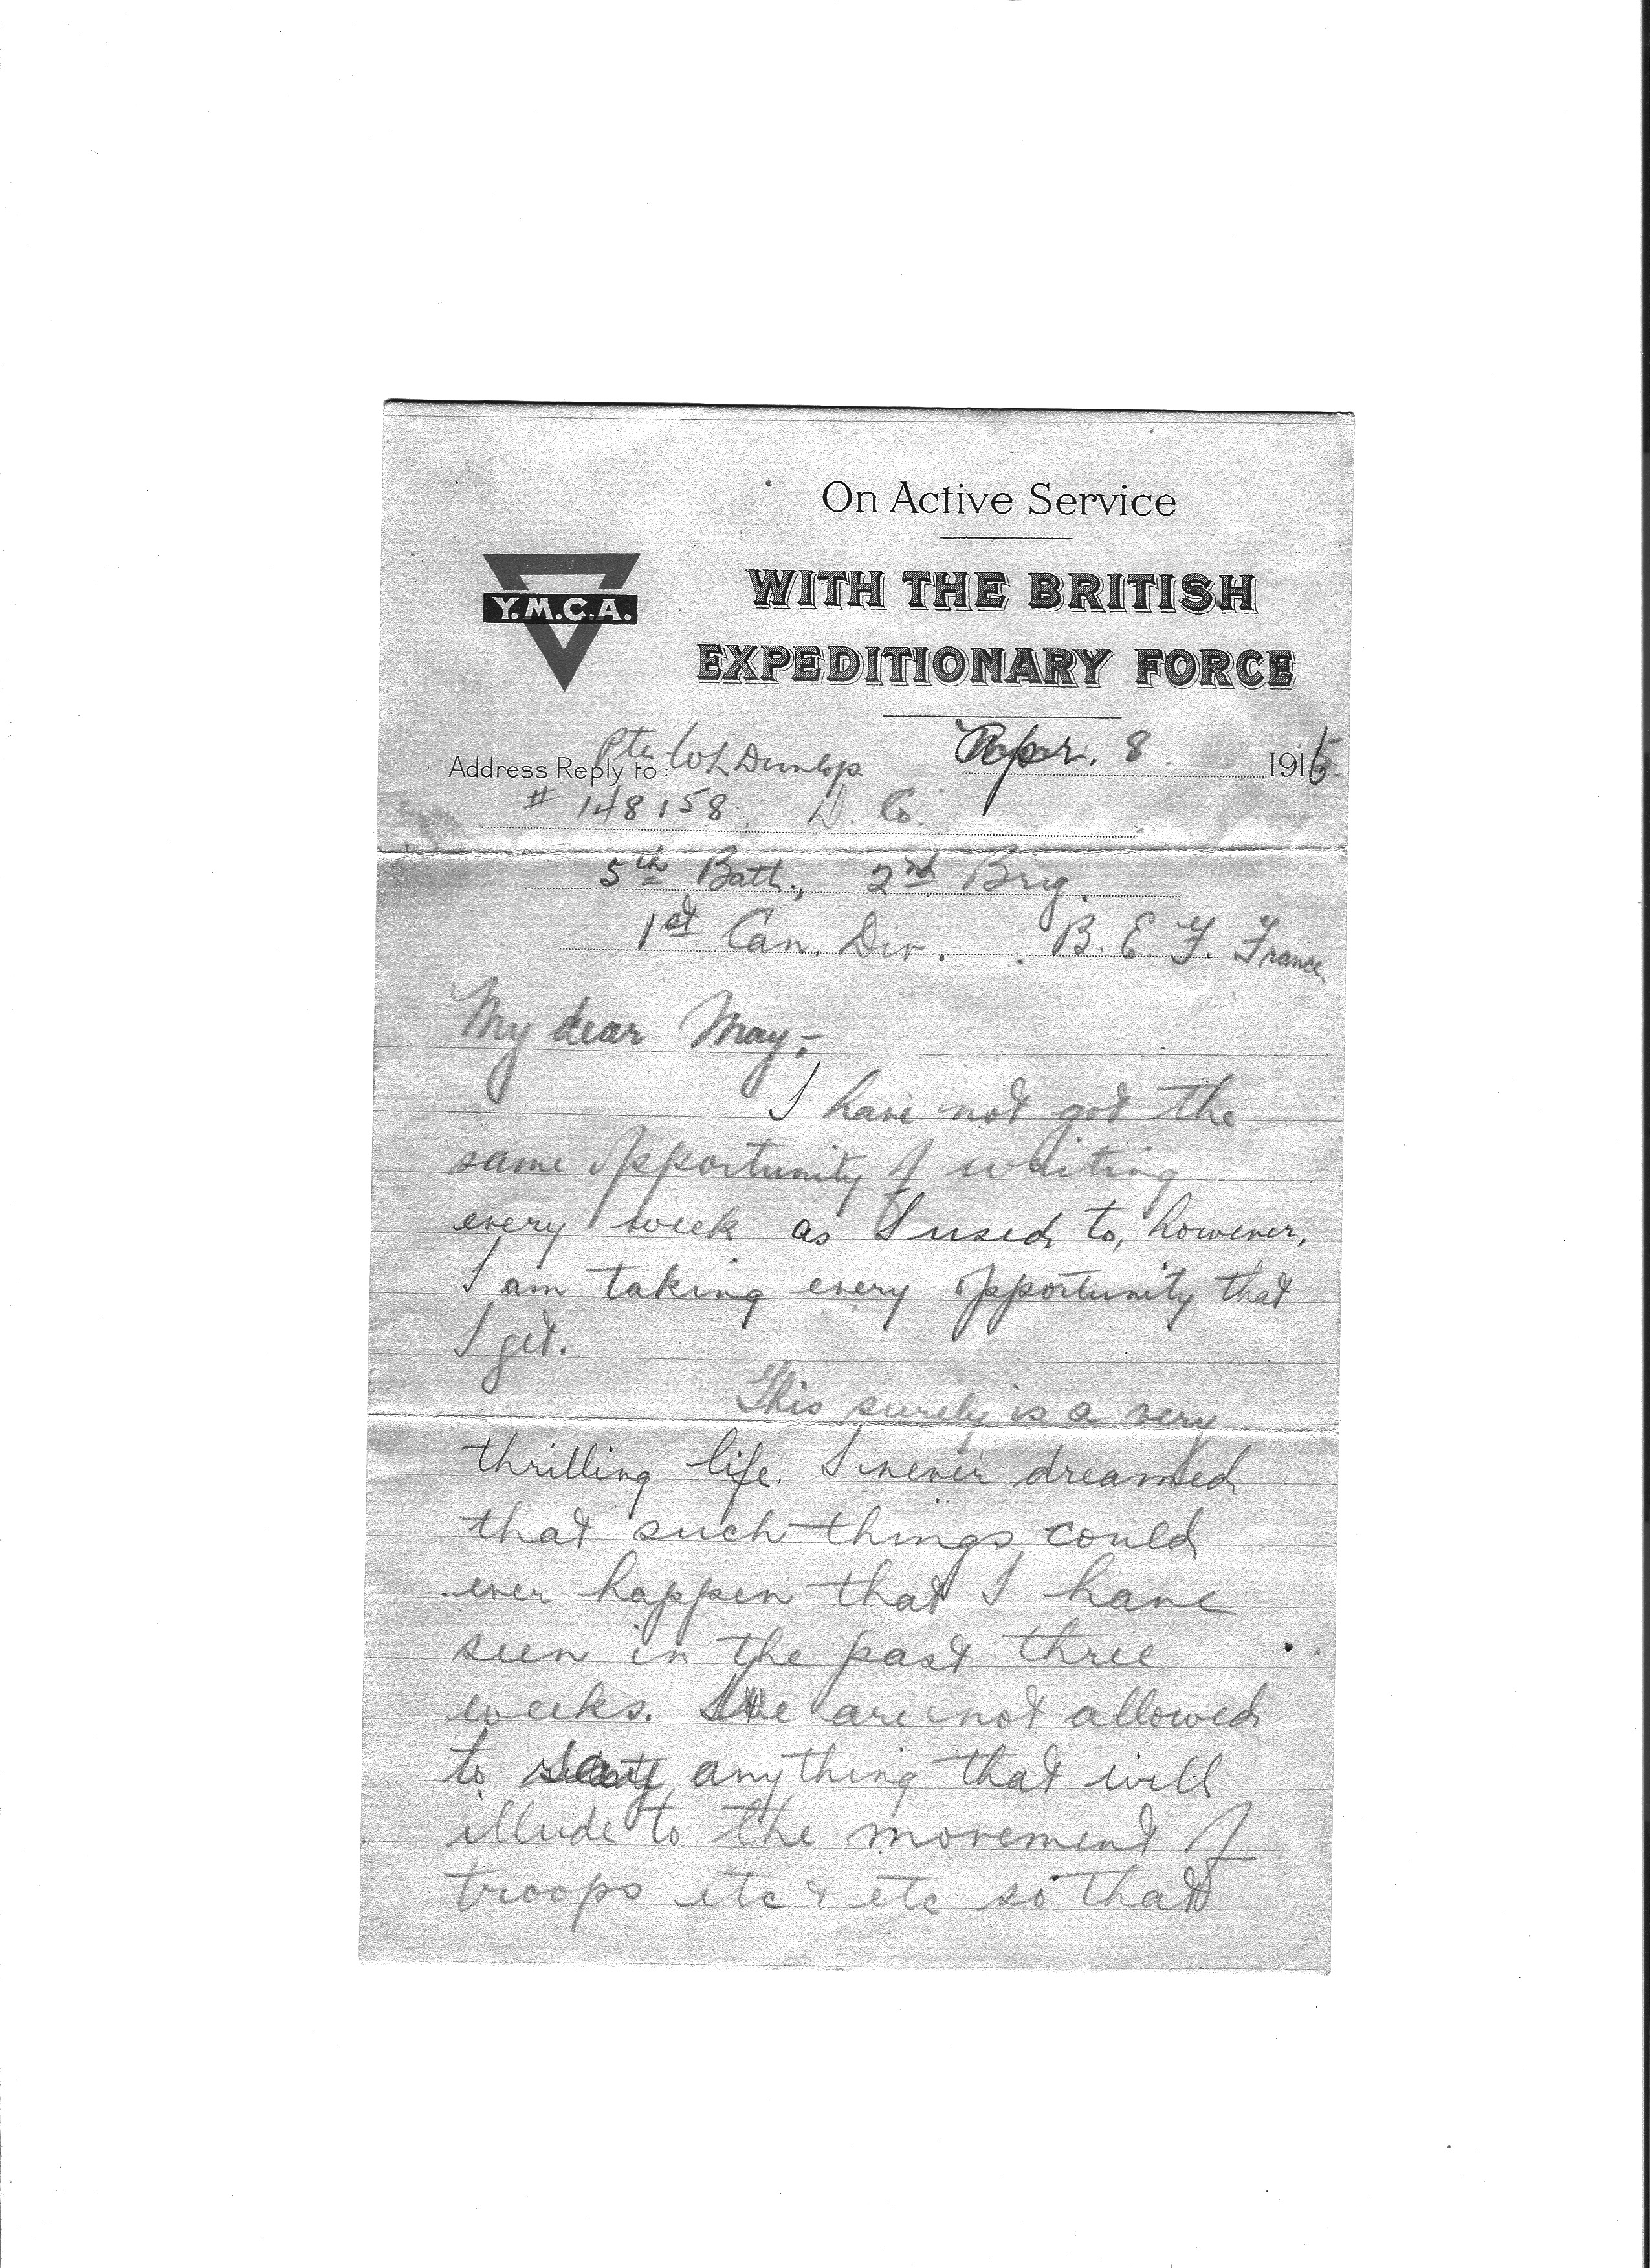 On Active Service
WITH THE BRITISH
Y.M.C.A.
EXPEDITIONARY FORCE
Apr. 8 1916
Address Reply to: Pte W L Dunlop
# 148158. D. Co.
5th Batt., 2nd Brig.
1st Can. Div. B. E. F. France.
My dear May:-
I have not got the
same opportunity of writing
every week as I used to, however,
I am taking every opportunity that
I get.
This surely is a very
thrilling life. I never dreamed
that such things could
ever happen that I have
seen in the past three
weeks. We are not allowed
to say anything that will
illude to the movement of
troops etc & etc so that